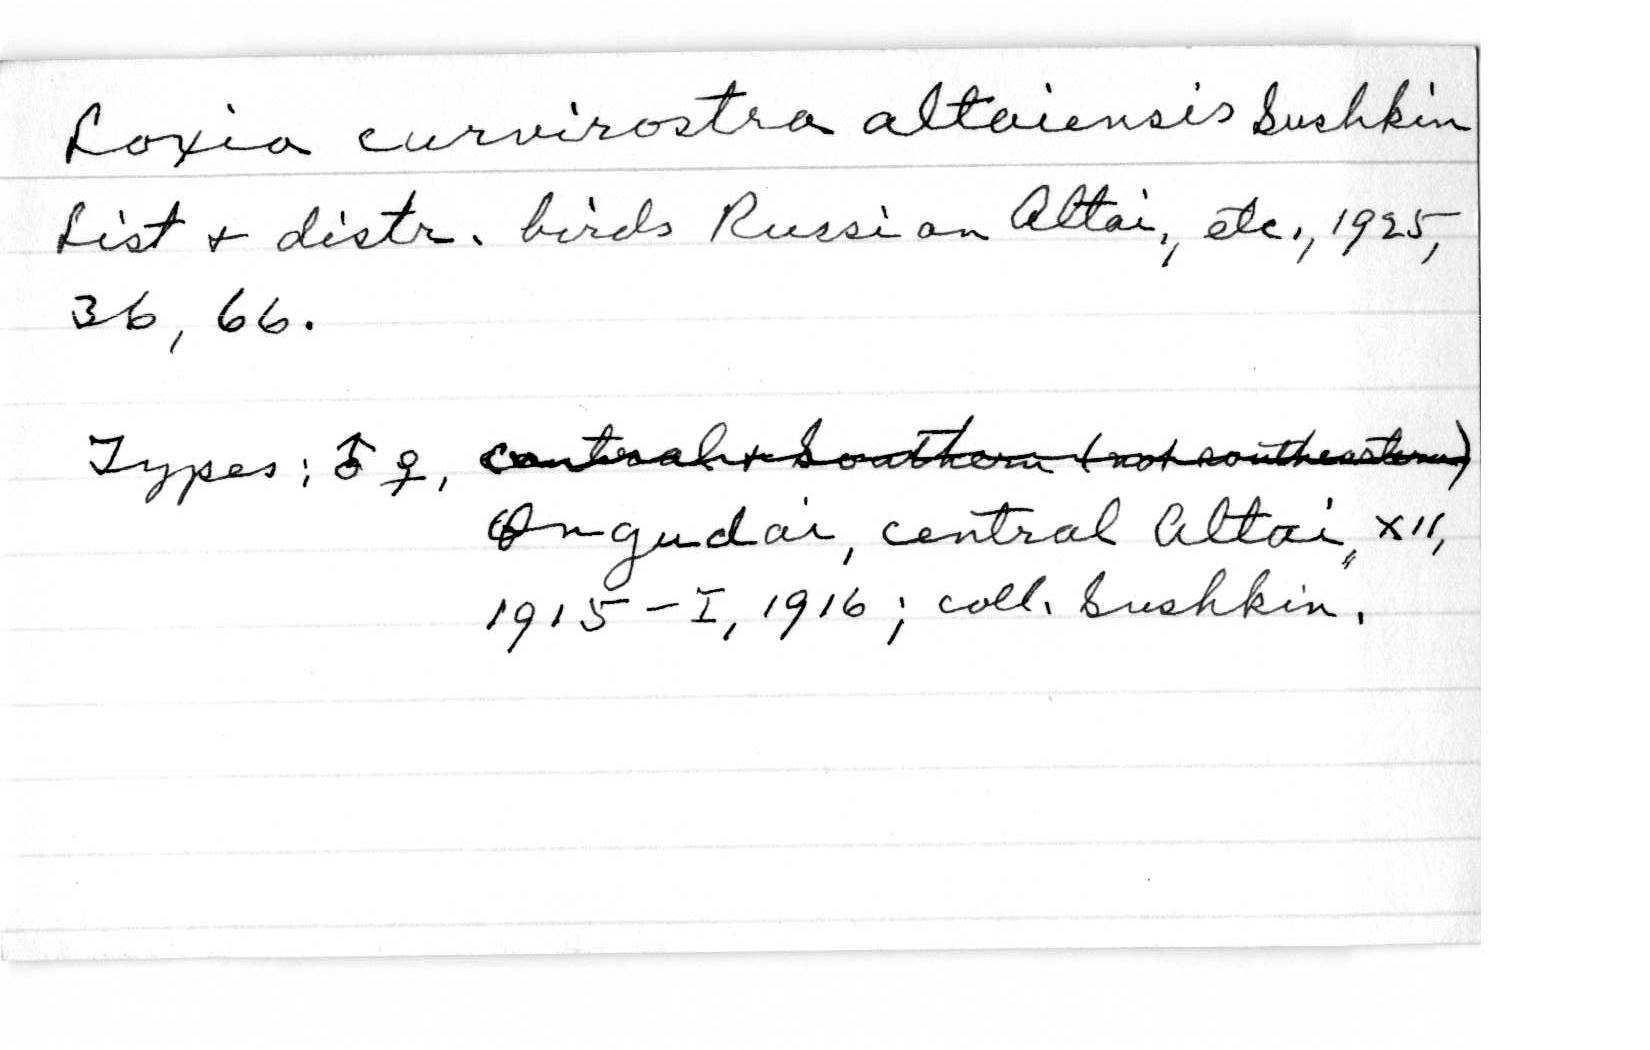 Loxia curvirostra altaiensis Sushkin
List + distr. birds Russian Altai, etc., 1925,
36, 66.
Types; ♂ ♀, central + Southern (not southeastern)
Ongudai, central Altai, XII,
1915 - I, 1916; coll. Sushkin.